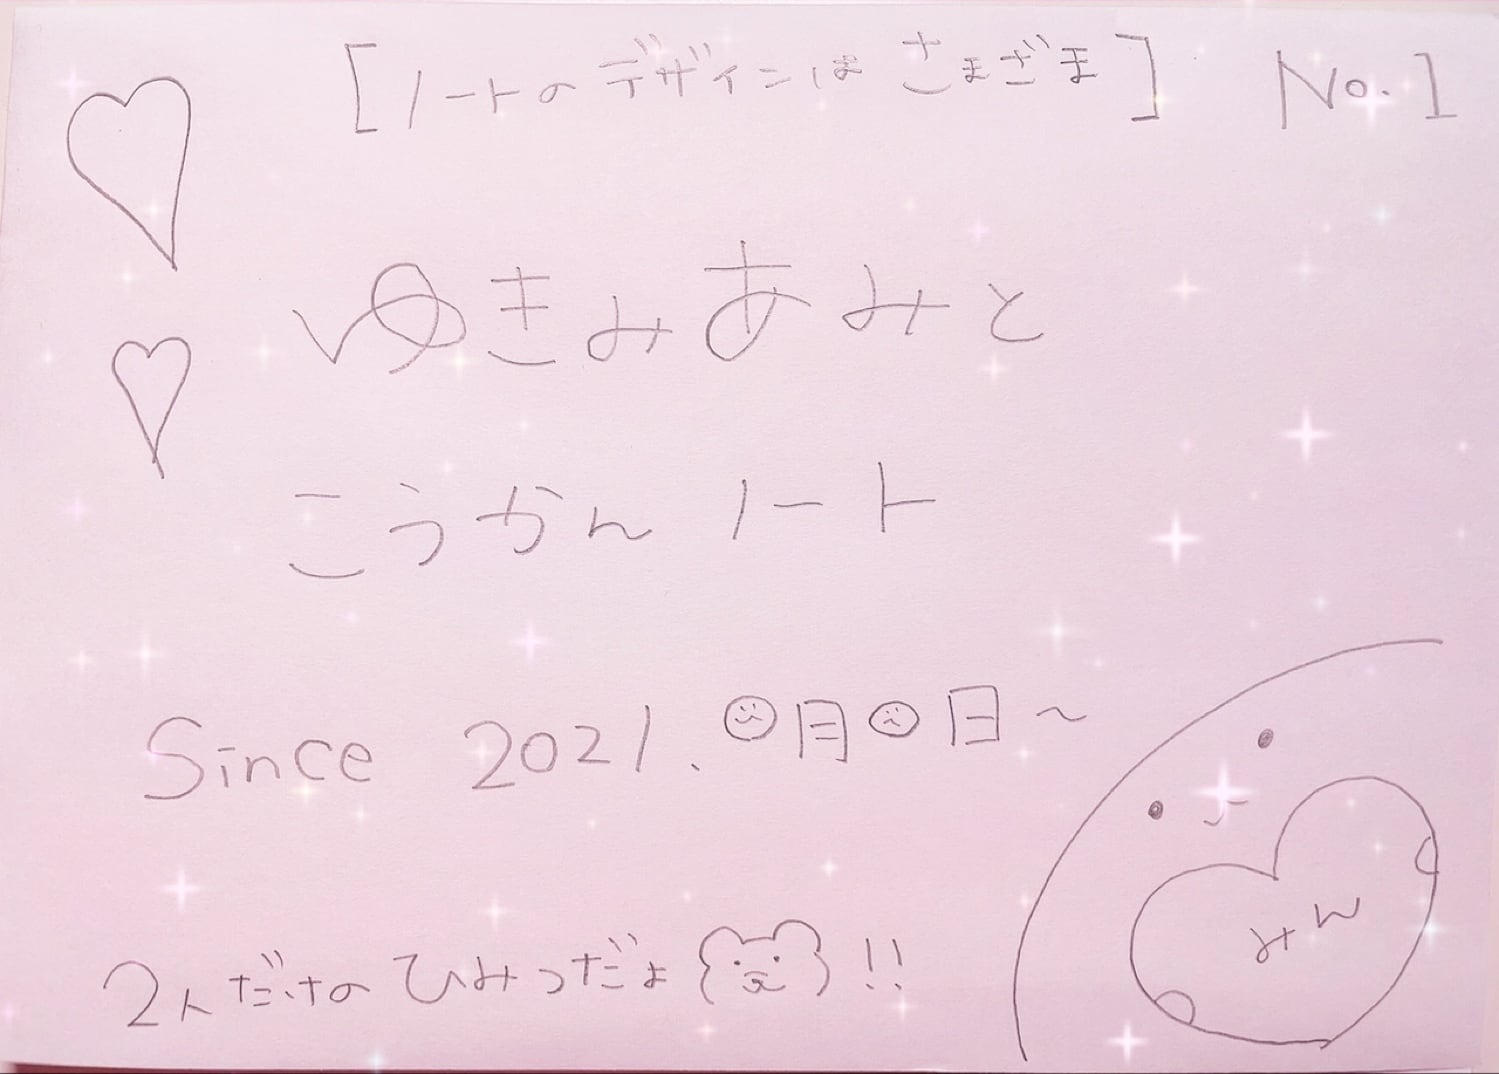 [ノートのデザインはさまざま] No.1
ゆきみあみと
こうかんノート
Since 2021.月日～
2人だけのひみつだよ!!
みん